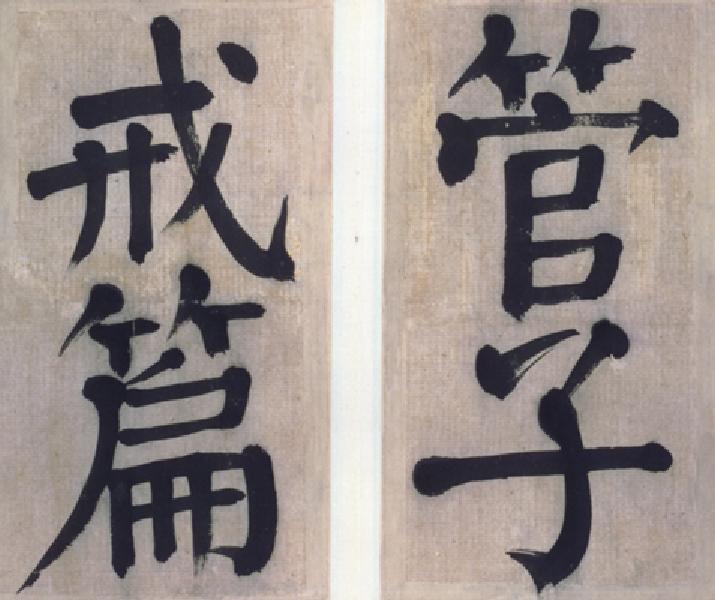 管子
戒篇